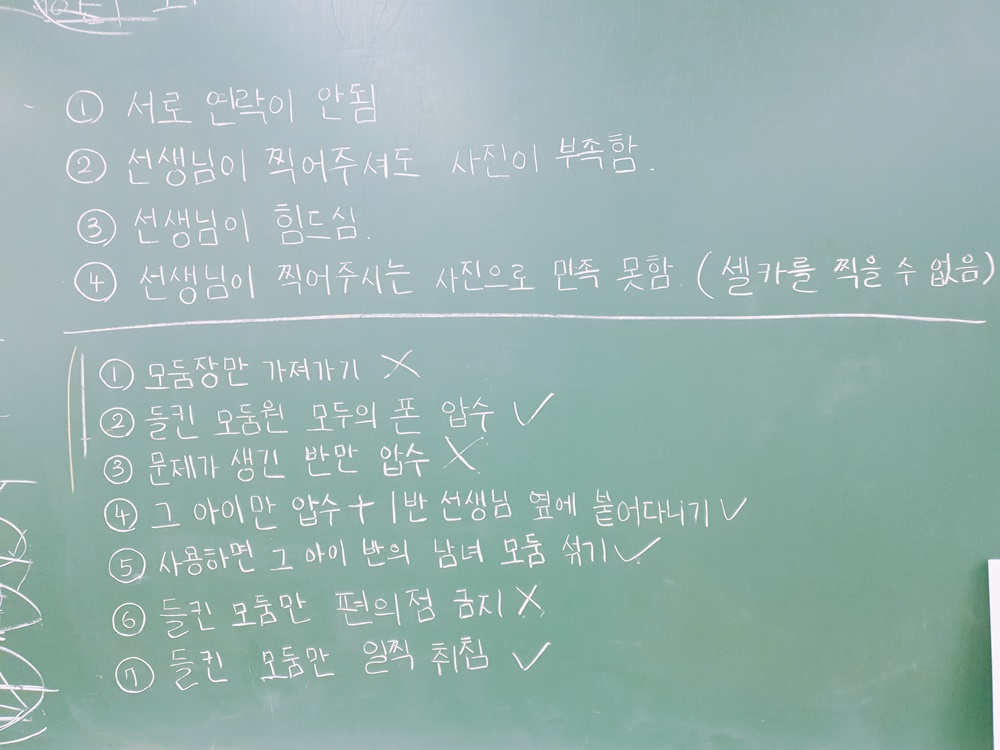 ① 서로 연락이 안됨
② 선생님이 찍어주셔도 사진이 부족함.
③ 선생님이 힘드심.
④ 선생님이 찍어주시는 사진으로 만족 못함. (셀카를 찍을 수 없음)
① 모둠장만 가져가기 X
② 들킨 모둠원 모두의 폰 압수 ✓
③ 문제가 생긴 반만 압수 X
④ 그 아이만 압수 + 1반 선생님 옆에 붙어다니기 ✓
⑤ 사용하면 그 아이 반의 남녀 모둠 섞기 ✓
⑥ 들킨 모둠만 편의점 금지 X
⑦ 들킨 모둠만 일찍 취침 ✓